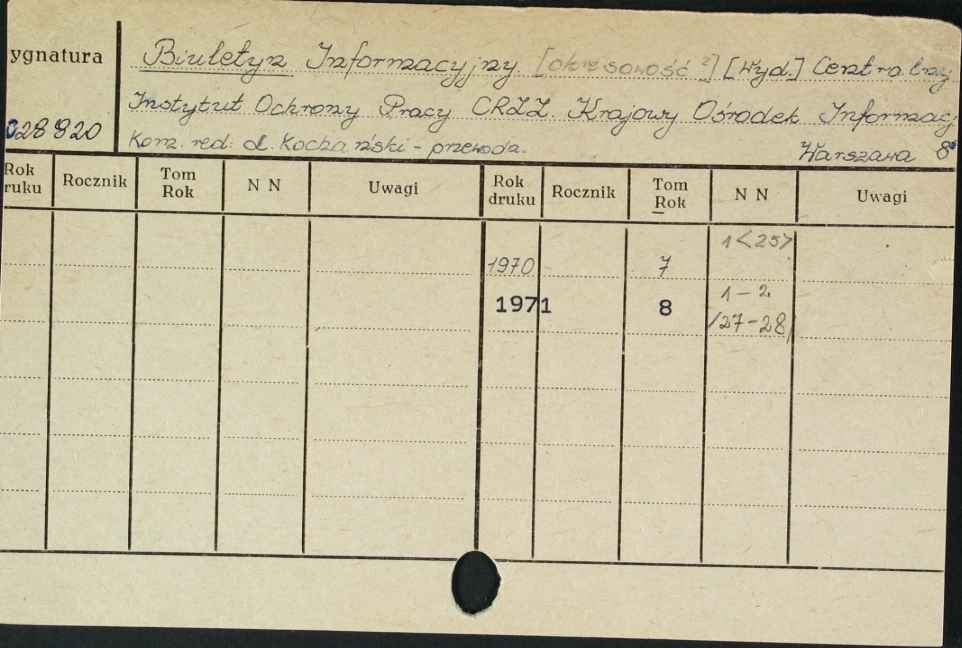 ygnatura
Biuletyn Informacyjny [okresowość ?] [Wyd.] Centralny
Instytut Ochrony Pracy CRZZ. Krajowy Ośrodek Informacj
028920
Kom. red: L. Kochański - przewodn.
Warszawa 8°
Rok ruku Rocznik Tom Rok N N Uwagi Rok druku Rocznik Tom Rok N N Uwagi
1<25>
1970 7
1971 8 1-2
/27-28/